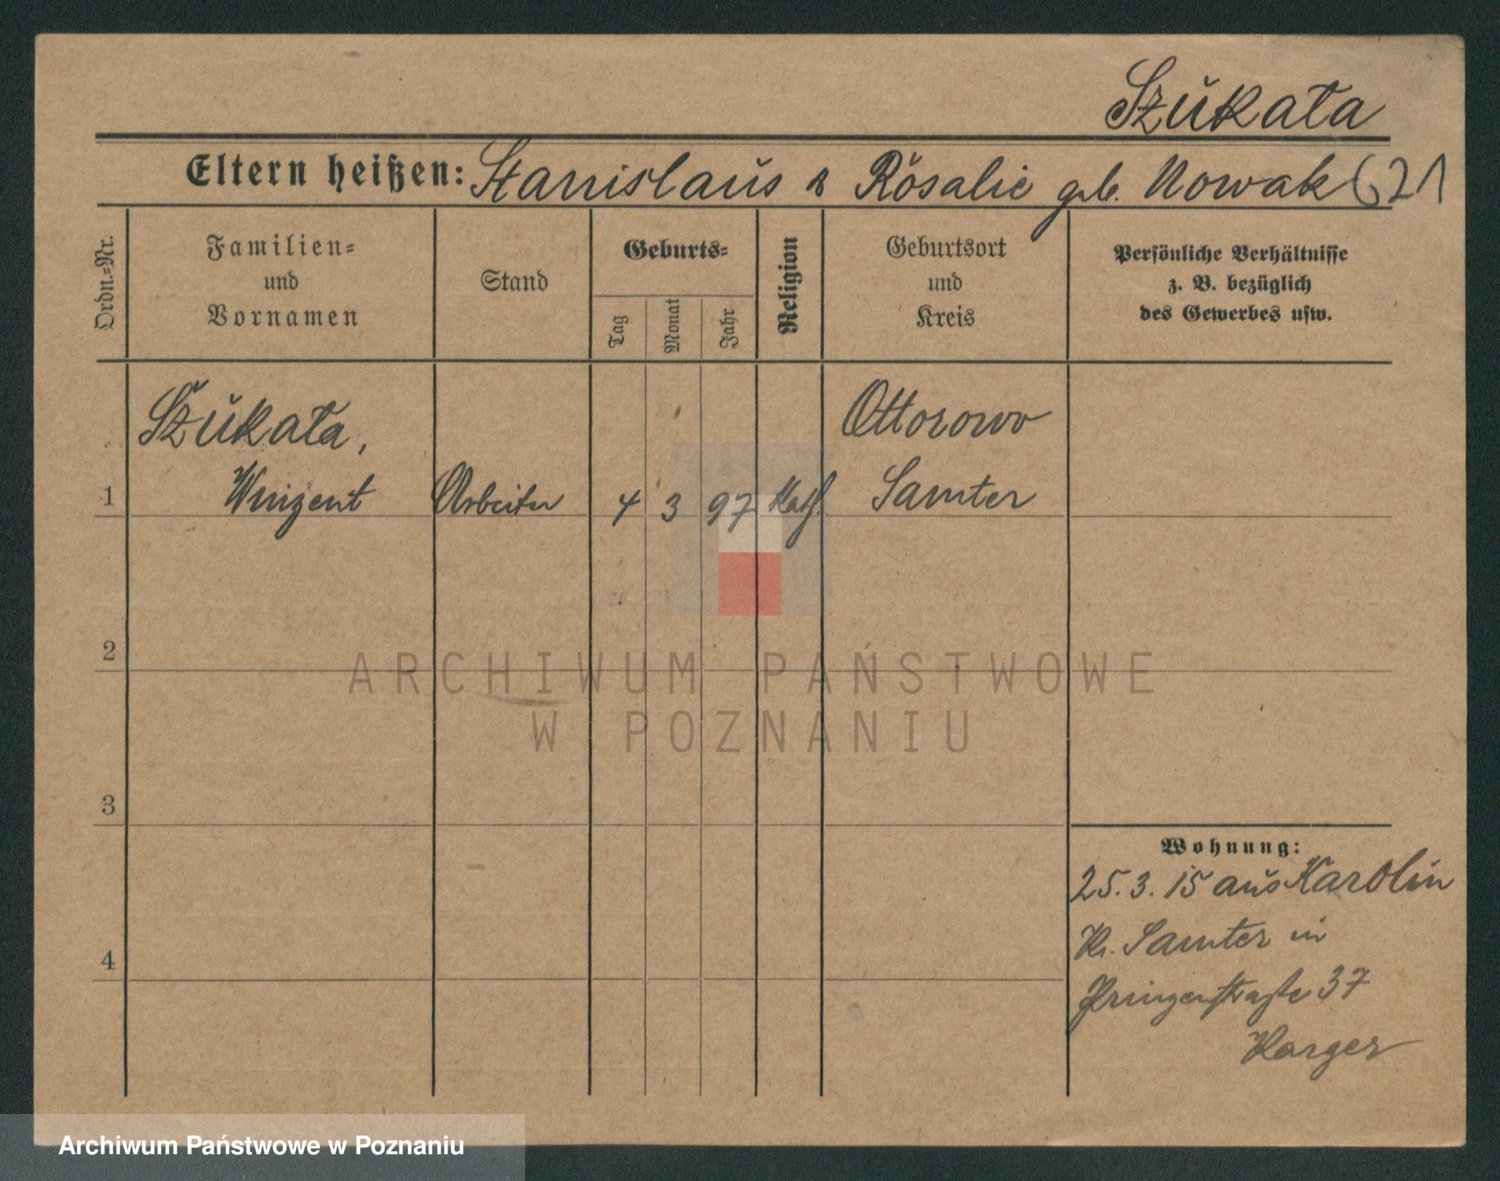 Szukała
Eltern heißen: Stanislaus & Rosalie geb. Nowak 621
Ordn.-Nr.
Familien-
und
Vornamen
Stand
Geburts-
Tag
Monat
Jahr
Religion
Geburtsort
und
Kreis
Persönliche Verhältnisse
z. B. bezüglich
des Gewerbes usw.
Szukała,
Ottorowo
1 Winzent Arbeiter 4 3 97 Kath. Samter
2
ARCHIWUM PAŃSTWOWE
W POZNANIU
3
Wohnung:
25.3.15 aus Karolin
Kr. Samter in
4
Prinzenstraße 37
Karger
Archiwum Państwowe w Poznaniu